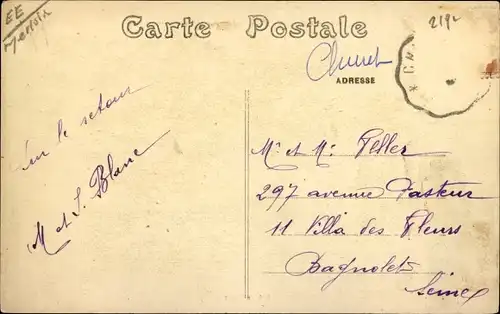 EE
2192
Carte Postale
ADRESSE
Sur le retour
M et S. Blanc
Mr et Me Feller
297 avenue Pasteur
11 Villa des Fleurs
Bagnolet
Seine